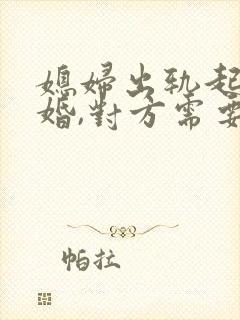 媳婦出軌起
婚,對方需要
帕拉